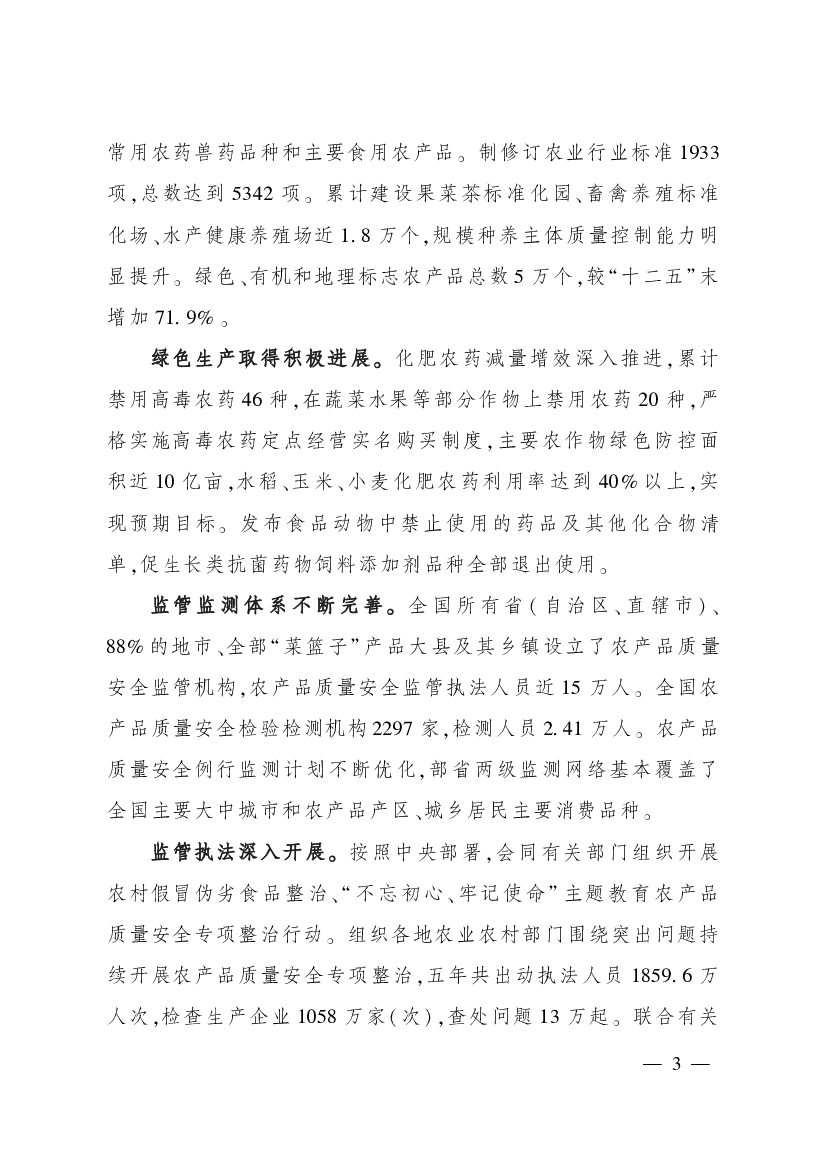 常用农药兽药品种和主要食用农产品。制修订农业行业标准 1933
项,总数达到 5342 项。累计建设果菜茶标准化园、畜禽养殖标准
化场、水产健康养殖场近 1.8 万个,规模种养主体质量控制能力明
显提升。绿色、有机和地理标志农产品总数 5 万个,较“十二五”末
增加 71.9%。
绿色生产取得积极进展。化肥农药减量增效深入推进,累计
禁用高毒农药 46 种,在蔬菜水果等部分作物上禁用农药 20 种,严
格实施高毒农药定点经营实名购买制度,主要农作物绿色防控面
积近 10 亿亩,水稻、玉米、小麦化肥农药利用率达到 40%以上,实
现预期目标。发布食品动物中禁止使用的药品及其他化合物清
单,促生长类抗菌药物饲料添加剂品种全部退出使用。
监管监测体系不断完善。全国所有省(自治区、直辖市)、
88%的地市、全部“菜篮子”产品大县及其乡镇设立了农产品质量
安全监管机构,农产品质量安全监管执法人员近 15 万人。全国农
产品质量安全检验检测机构 2297 家,检测人员 2.41 万人。农产品
质量安全例行监测计划不断优化,部省两级监测网络基本覆盖了
全国主要大中城市和农产品产区、城乡居民主要消费品种。
监管执法深入开展。按照中央部署,会同有关部门组织开展
农村假冒伪劣食品整治、“不忘初心、牢记使命”主题教育农产品
质量安全专项整治行动。组织各地农业农村部门围绕突出问题持
续开展农产品质量安全专项整治,五年共出动执法人员 1859.6 万
人次,检查生产企业 1058 万家(次),查处问题 13 万起。联合有关
— 3 —